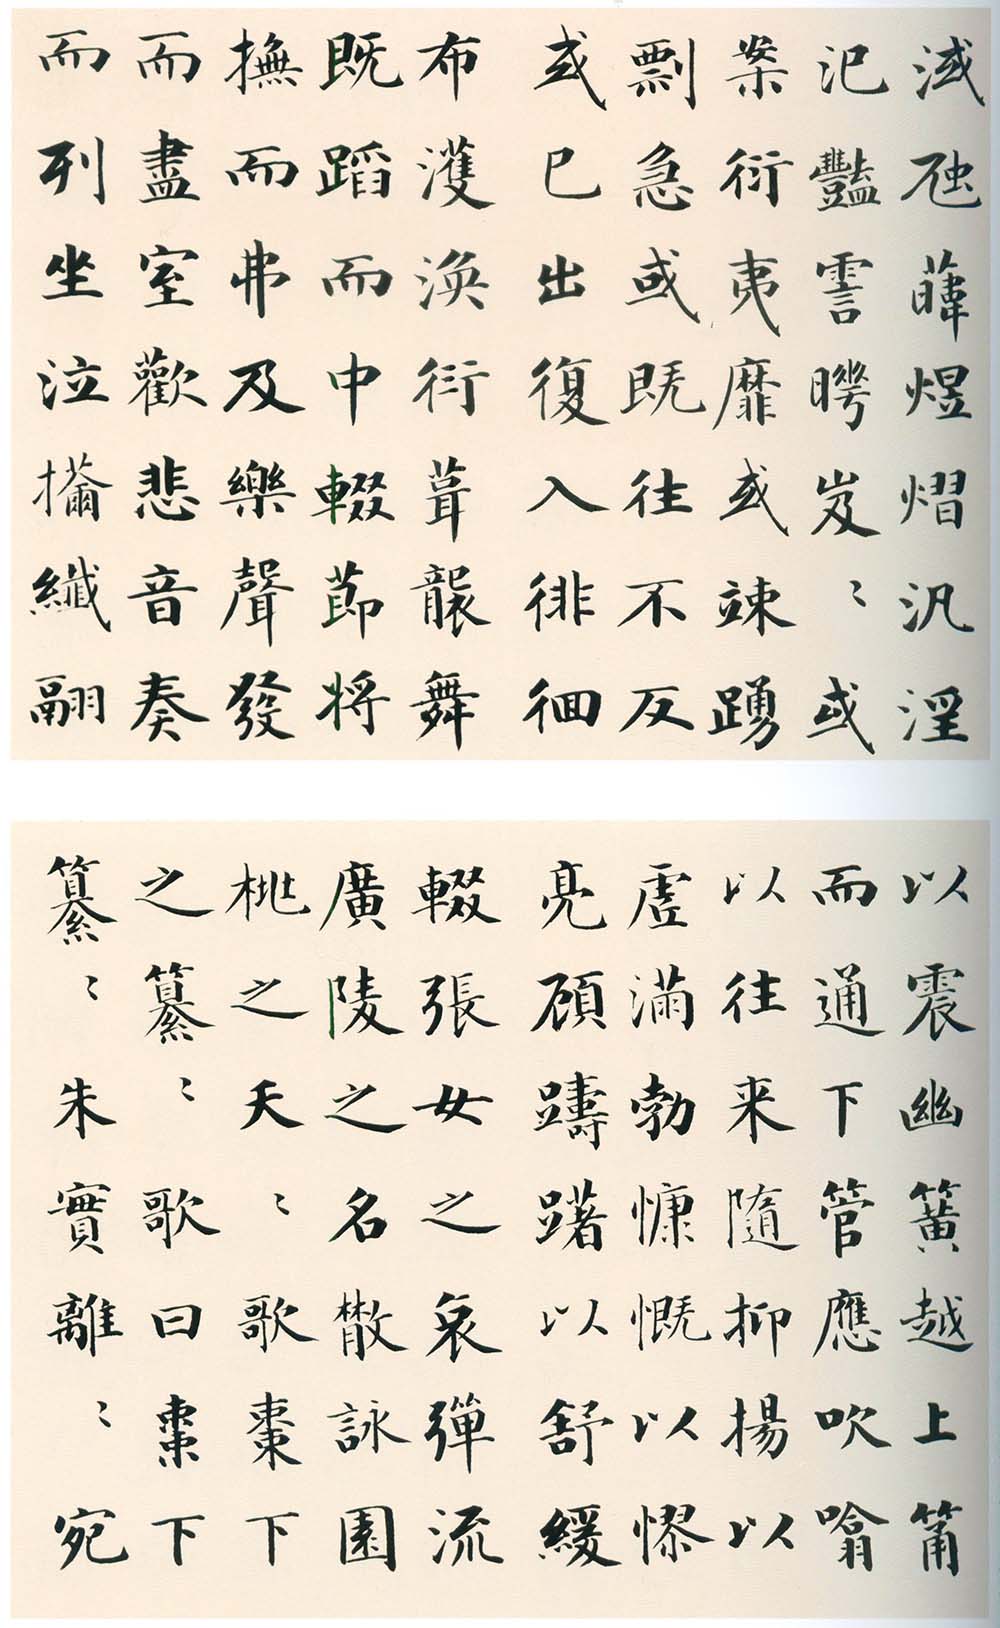 淢虺韡煜熠汎淫
氾豔霅曄岌〻或
案衍夷靡或竦踴
剽急或既往不反
或已出復入徘徊
布濩渙衍葺襲舞
既蹈而中輟節將
撫而弗及樂聲發
而盡室歡悲音奏
而列坐泣纖翮
以震幽簧越上筩
而通下管應吹噏
以往来隨抑揚以
虛滿勃慷慨以憀
亮顧躊躇以舒緩
輟張女之哀彈流
廣陵之名散詠園
桃之夭〻歌棗下
之纂〻歌曰棗下
纂〻朱實離〻宛